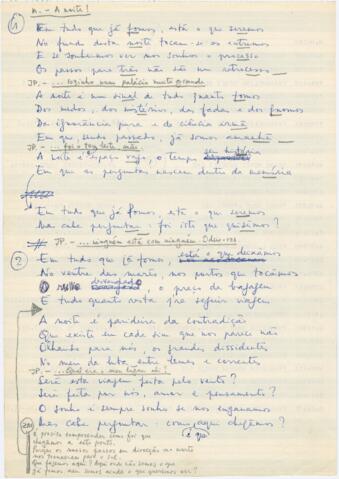 M. - A noite!
1
Em tudo que já fomos, está o que seremos
No fundo desta noite tocam-se os extremos
E se soubermos ver nos sonhos o processo
Os passos para trás não são um retrocesso
JP. - ... sozinho num palácio muito grande
A noite é um sinal de tudo quanto fomos
Dos medos, dos mistérios, das fadas e dos gnomos
Da ignorância pura e da ciência irmã
Em que, sendo passado, já somos amanhã
JP. - ... foi o teu
seu história
A noite é espaço vago, o tempo
Em que as perguntas nascem dentro da memória
Em tudo que já fomos, está o que seremos
Mas cabe perguntar: foi isto que quisemos?
JP. - ... ninguém está com ninguém.
2
Em tudo que já fomos, está o que deixámos
No ventre das marés, nos portos que tocámos
o preço da bagagem
E tudo quanto resta pra seguir viagem
A noite é parideira da contradição
Que existe em cada sim que nos parece não
Olhando para nós, os grandes dissidentes
No meio da luta entre lemes e correntes
JP. -
Será esta viagem feita pelo vento?
Será feita por nós, amor e pensamento?
O sonho é sempre sonho se nos enganamos
Mas cabe perguntar: como aqui chegámos?
é que
É preciso compreender como foi que
chegámos a este ponto.
Porque os nossos passos em direcção ao norte
nos trouxeram para o sul.
Que fazemos aqui? Aqui não somos o que
Já fomos nem somos ainda o que queremos ser?